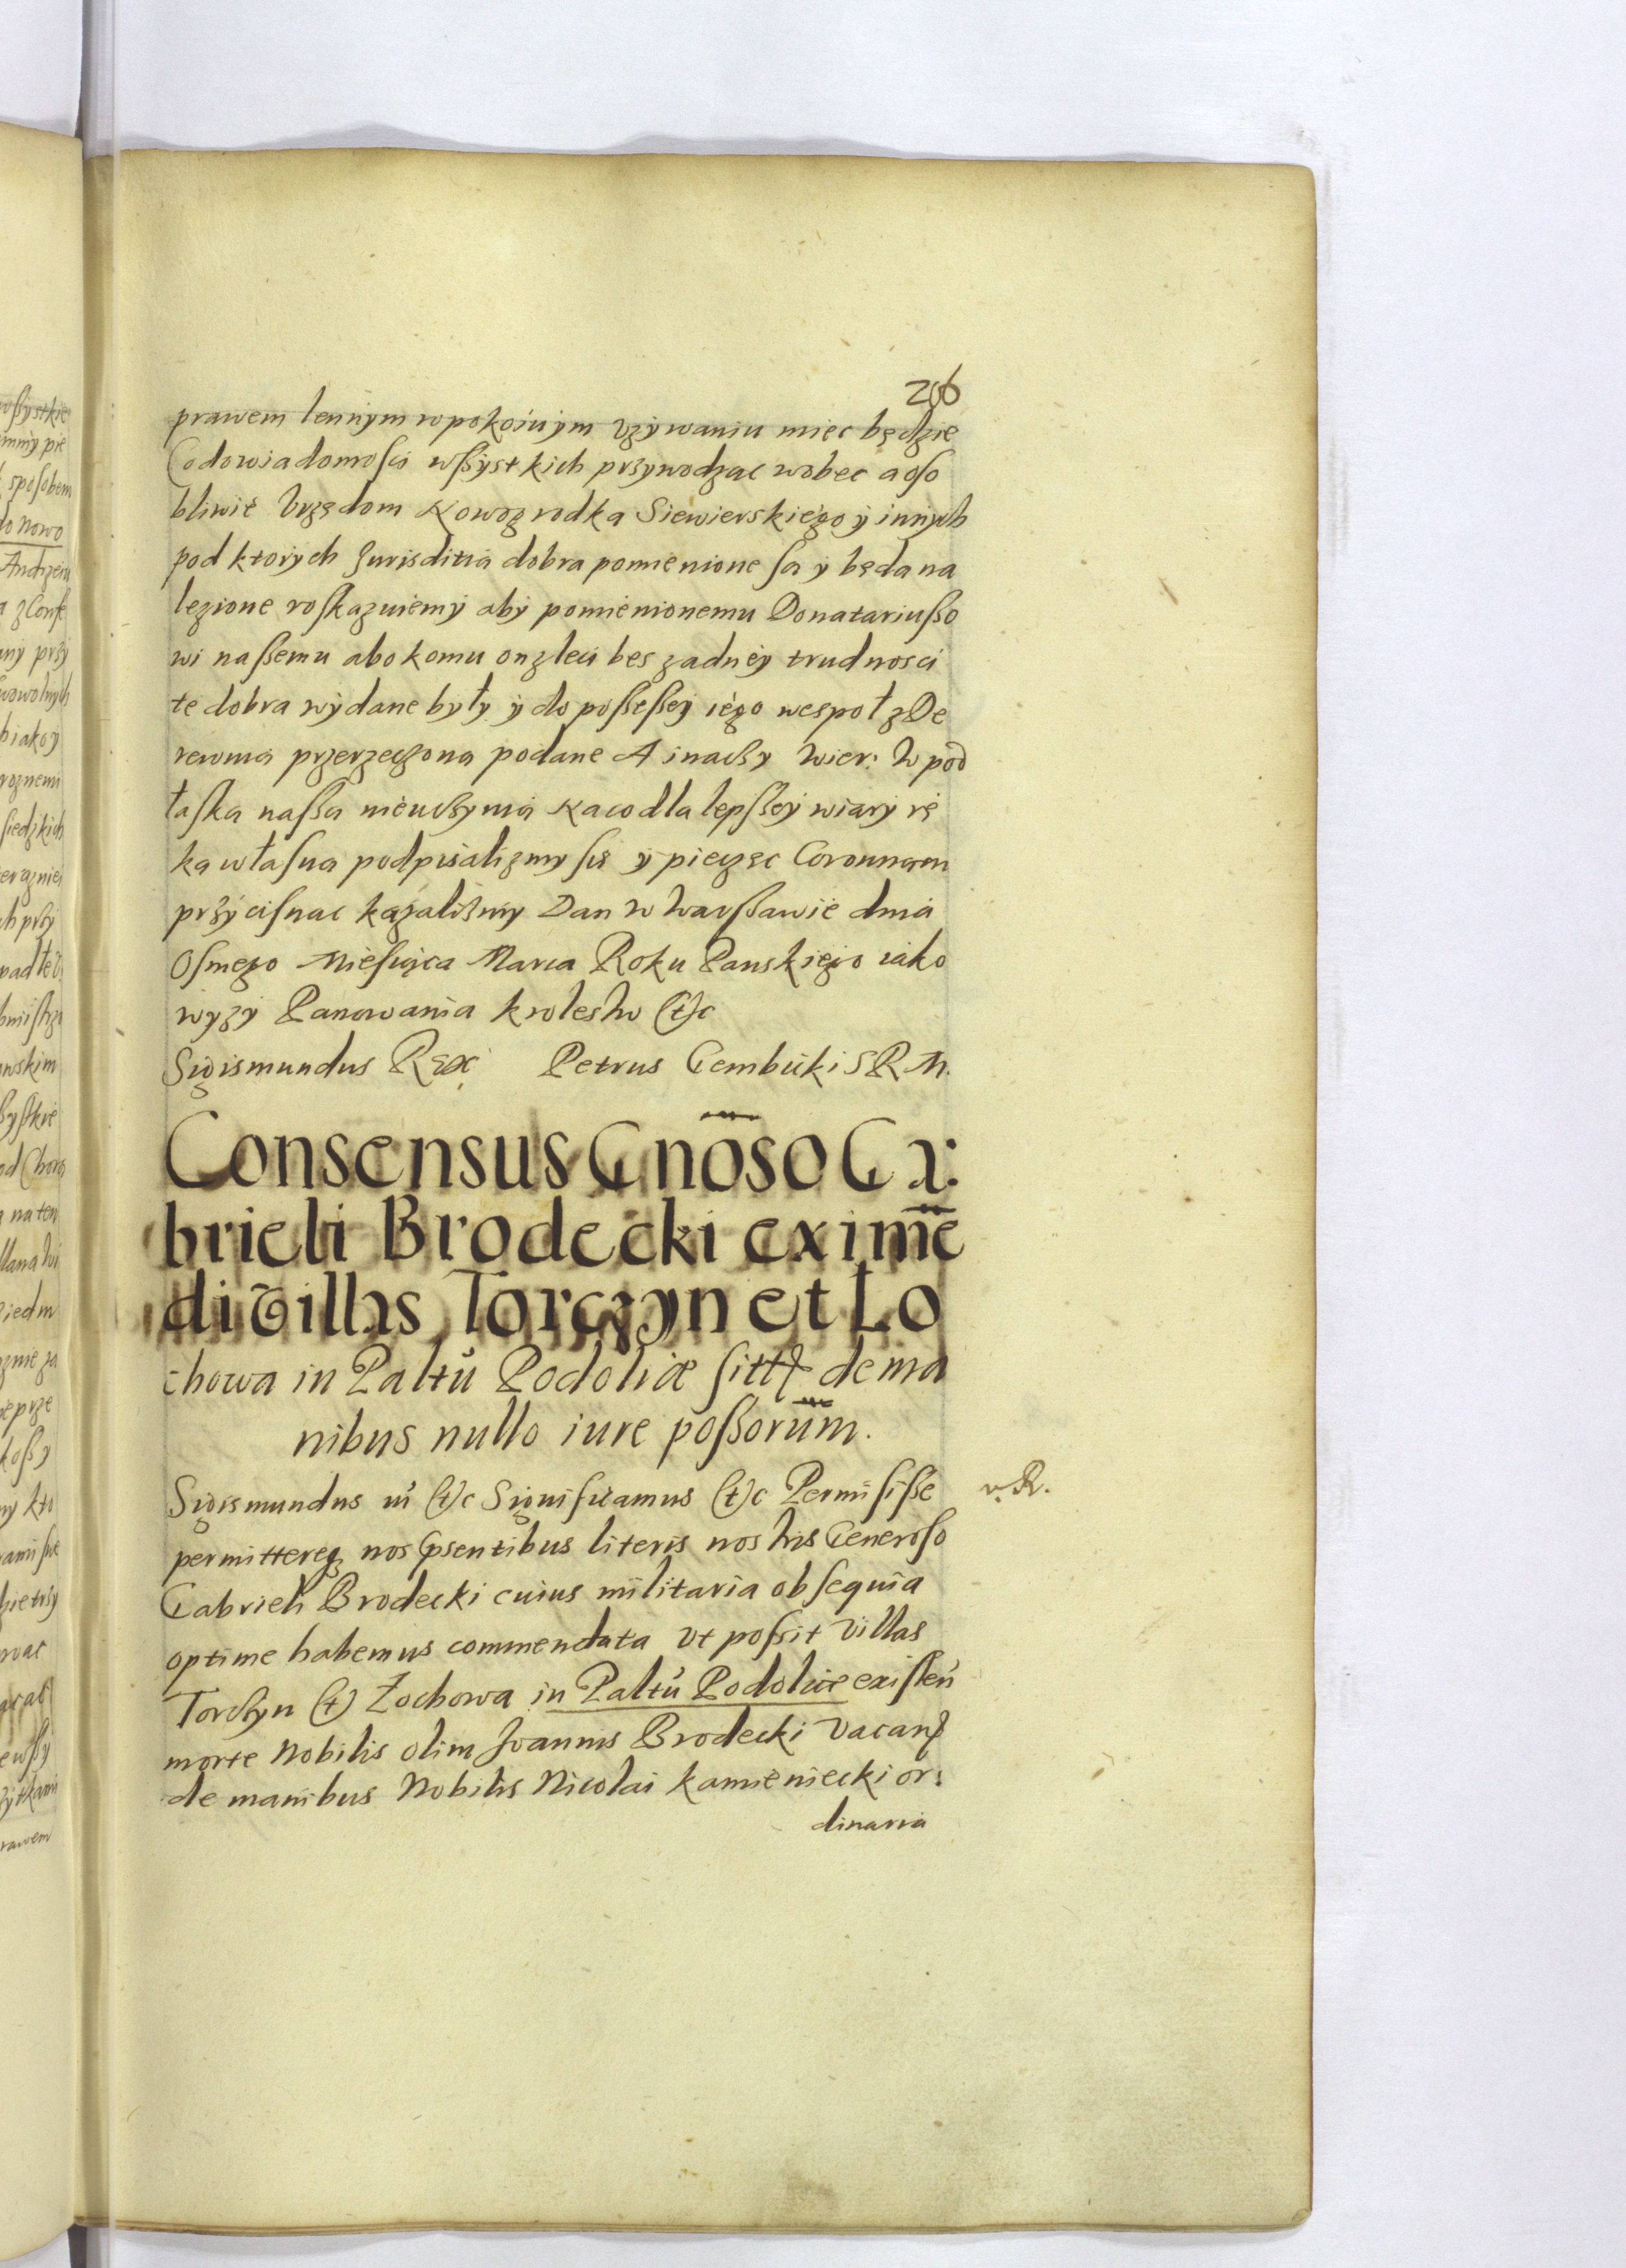 206
prawem lennym w pokoinym vzywaniu miec będzie
Co do wiadomosci wßystkich przywodząc wobec a oso
bliwie Vrzędom Nowogrodka Siewierskiego y innych
pod ktorych Jurisditią dobra pomienione są y będa na
lezione roskazuiemy aby pomienionemu Donatariußo
wi naßemu abo komu on zleci bes zadney trudnosci
te dobra wydane były y do poßeßey iego wespoł z De
rewnią przerzeczoną podane A inaczy Wier: W pod
łaską naßą nie uczynią Na co dla lepßey wiary rę
ką własną podpisalizmy się y pieczęc Coronną
przycisnąc kazalizmy Dan w Warßawie dnia
Osmego Miesiąca Marca Roku Panskiego iako
wyzy Panowania krolestw (et)c
Sigismundus Rex Petrus Gembicki S R M.
Consensus Gnoso Ga:
brieli Brodecki eximē
di Villas Torczyn et Lo
chowa in Paltū Podoliæ sitt de ma
nibus nullo iure poßorum.
Sigismundus iii (et)c Significamus (et)c Permisiße
v. R.
permittereq nos psentibus literis nostris Generoso
Gabrieli Brodecki cuius militaria obsequia
optime habemus commendata vt possit Villas
Torczyn (et) Zochowa in Paltū Podoliæ existen
morte Nobilis olim Joannis Brodecki Vacan
de manibus Nobilis Nicolai kamieniecki or:
dinaria